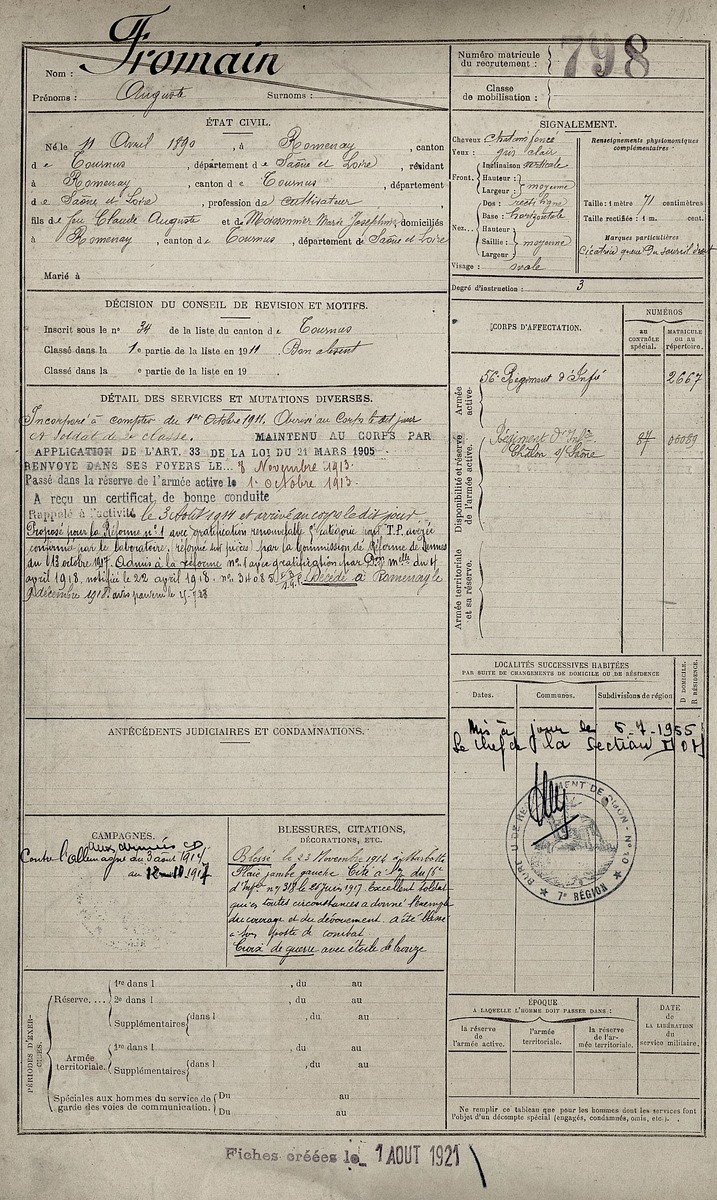 Nom : Fromain
Prénoms : Auguste Surnoms :
Numéro matricule du recrutement : 798
Classe de mobilisation :
ÉTAT CIVIL.
Né le 11 Avril 1890, à Romenay, canton
de Tournus, département de Saône et Loire, résidant
à Romenay, canton de Tournus, département
de Saône et Loire, profession de cultivateur
fils de feu Claude Auguste et de Moissonnier Marie Josephine domiciliés
à Romenay, canton de Tournus, département de Saône et Loire
Marié à
SIGNALEMENT.
Cheveux chatain foncé
Yeux : gris clair
Front. Inclinaison verticale
Hauteur :
Largeur : moyenne
Nez... Dos : rectiligne
Base : horizontale
Hauteur
Saillie : moyenne
Largeur
Visage : ovale
Renseignements physionomiques complémentaires :
Taille : 1 mètre 71 centimètres
Taille rectifiée : 1 m. cent.
Marques particulières
Cicatrice queue du sourcil droit
Degré d'instruction : 3
DÉCISION DU CONSEIL DE REVISION ET MOTIFS.
Inscrit sous le no 34 de la liste du canton de Tournus
Classé dans la 1e partie de la liste en 1911 Bon absent
Classé dans la e partie de la liste en 19
DÉTAIL DES SERVICES ET MUTATIONS DIVERSES.
Incorporé à compter du 1er Octobre 1911. Arrivé au Corps le dit jour
et soldat de 2e classe. MAINTENU AU CORPS PAR
APPLICATION DE L'ART. 33 DE LA LOI DU 21 MARS 1905
RENVOYÉ DANS SES FOYERS LE... 8 Novembre 1913.
Passé dans la réserve de l'armée active le 1 Octobre 1913.
A reçu un certificat de bonne conduite
Rappelé à l'activité le 3 Août 1914 et arrivé au corps le dit jour
Proposé pour la Réforme no 1 avec gratification renouvelable
confirmée par le laboratoire, réformé sur pièces) par la Commission de Réforme de
du 13 octobre 1917. Admis à la réforme no 1 avec gratification par Don melle du 4
avril 1918, notifiée le 22 avril 1918. no 34085 Décédé à Romenay le
9 décembre 1918. avis parvenu le
ANTÉCÉDENTS JUDICIAIRES ET CONDAMNATIONS.
CAMPAGNES.
aux armées
Contre l'Allemagne du 3 août 1914
au 1917
BLESSURES, CITATIONS,
DÉCORATIONS, ETC.
Blessé le 23 Novembre 1914 à Marbotte
Plaie jambe gauche Cité à
d'Infie no 318 le 25 juin 1917. Excellent soldat
qui en toutes circonstances a donné l'exemple
du courage et du dévouement. A été blessé
à son poste de combat.
Croix de guerre avec étoile de bronze
PÉRIODES D'EXERCICES.
Réserve.... 1re dans l , du au
2e dans l , du au
Supplémentaires dans l , du au
Armée territoriale. 1re dans l , du au
Supplémentaires dans l , du au
Spéciales aux hommes du service de garde des voies de communication. Du au
Du au
CORPS D'AFFECTATION.
NUMÉROS
AU CONTRÔLE spécial.
MATRICULE OU AU répertoire.
Armée active.
56e Régiment d'Infie 2667
Disponibilité et réserve de l'armée active.
Régiment d'Infie
Châlon s/ Saône
Armée territoriale et sa réserve.
LOCALITÉS SUCCESSIVES HABITÉES
PAR SUITE DE CHANGEMENTS DE DOMICILE OU DE RÉSIDENCE
Dates. Communes. Subdivisions de région
D. DOMICILE. R. RÉSIDENCE.
Mis à jour le 5-7-1955
Le chef de la section
BUREAU DE RECRUTEMENT DE DIJON - No 10
7e RÉGION
ÉPOQUE
A LAQUELLE L'HOMME DOIT PASSER DANS :
la réserve de l'armée active.
l'armée territoriale.
la réserve de l'armée territoriale.
DATE de LA LIBÉRATION du service militaire.
Ne remplir ce tableau que pour les hommes dont les services font
l'objet d'un décompte spécial (engagés, condamnés, omis, etc.).
Fiches créées le 1 AOUT 1921